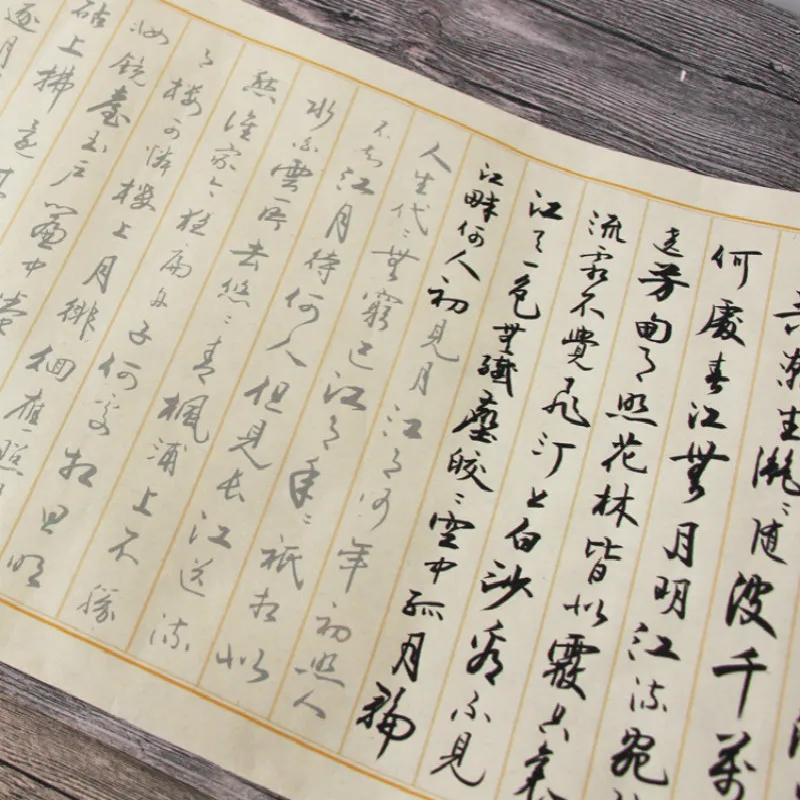 共潮生灩〻隨波千萬
何處春江無月明江流宛
遶芳甸月照花林皆似霰空裏
流霜不覺飛汀上白沙看不見
江天一色無纖塵皎〻空中孤月輪
江畔何人初見月江月何年初照人
人生代〻無窮已江月年〻衹相似
不知江月待何人但見長江送流
水白雲一片去悠〻青楓浦上不勝
愁誰家今夜扁舟子何處相思明
月樓可憐樓上月徘徊應照
妝鏡臺玉戶簾中捲
砧上拂還
逐月